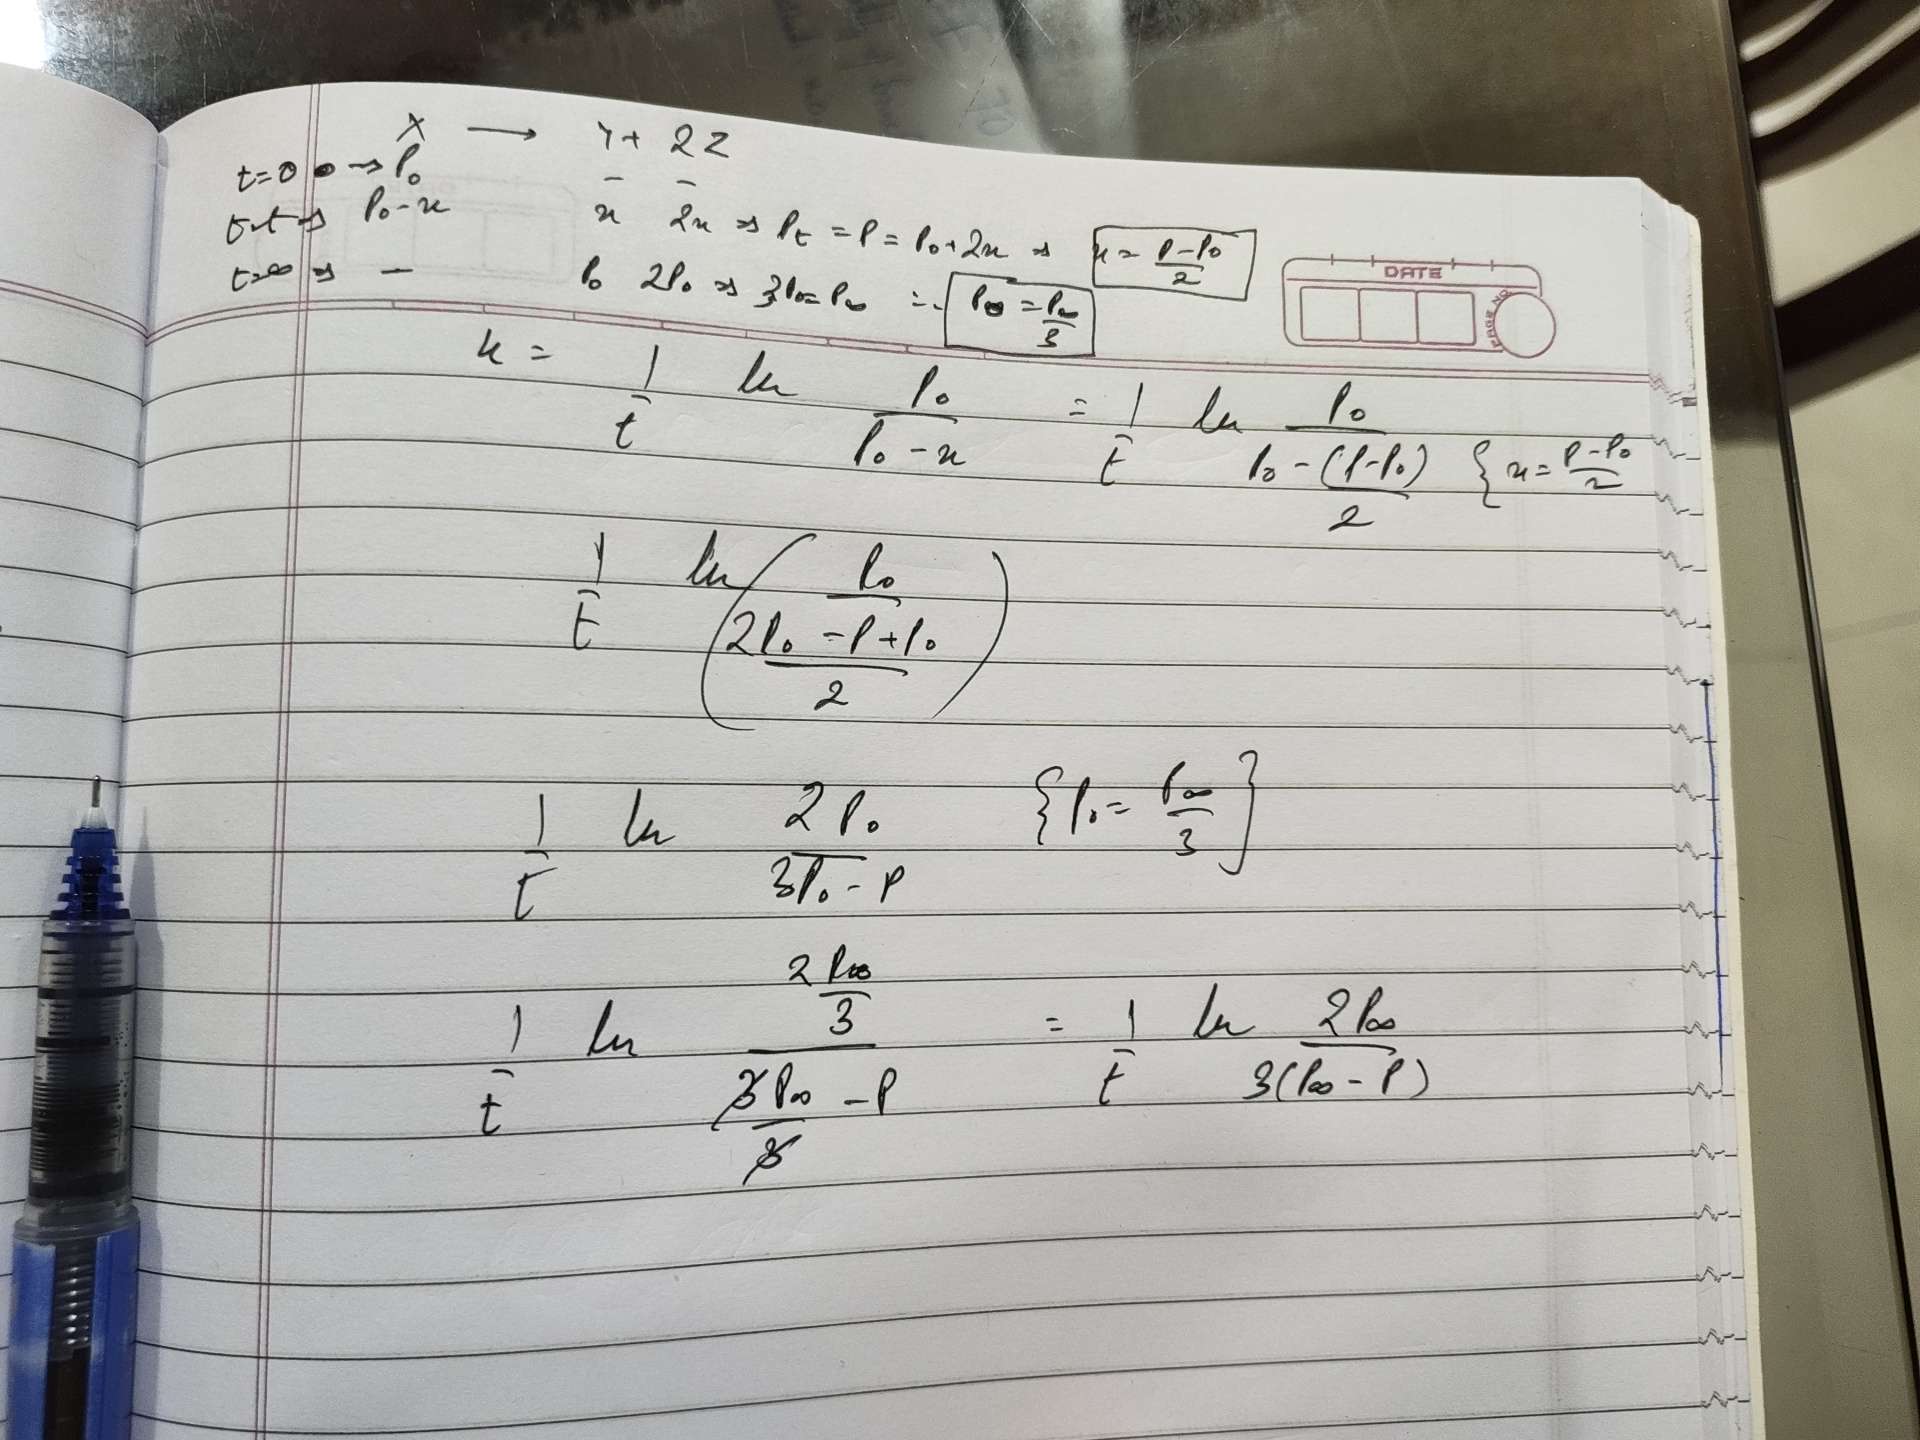 X → Y + 2Z
t=0 → P₀ - -
t=t ⇒ P₀-x x 2x ⇒ Pₜ = P = P₀+2x ⇒ x = (P-P₀)/2
t=∞ ⇒ - P₀ 2P₀ ⇒ 3P₀=P∞ ∴ P₀ = P∞/3
DATE
PAGE NO.
k = 1/t ln P₀/(P₀-x) = 1/t ln P₀/(P₀-(P-P₀)/2) { x = (P-P₀)/2
1/t ln (P₀/((2P₀-P+P₀)/2))
1/t ln 2P₀/(3P₀-P) {P₀ = P∞/3}
1/t ln (2P∞/3)/(3P∞/3 - P) = 1/t ln 2P∞/(3(P∞-P))